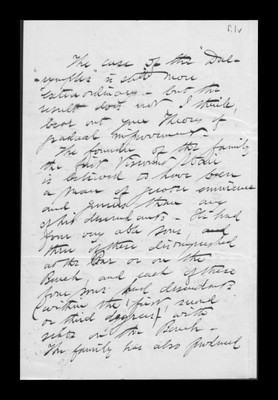 The case of the "Dal-
-rymples" is still more
extraordinary - but the
result does not I think,
bear out your theory of
gradual improvement -
The founder of the family
the first Viscount Stair
is believed to have been
a man of greater eminence
and genius than any
of his descendants - He had
four very able sons, and
three of these distinguished
at the Bar or on the
Bench, and each of these
four sons had descendants
(within the first second
or third degrees) with
seats on the Bench -
The family has also produced